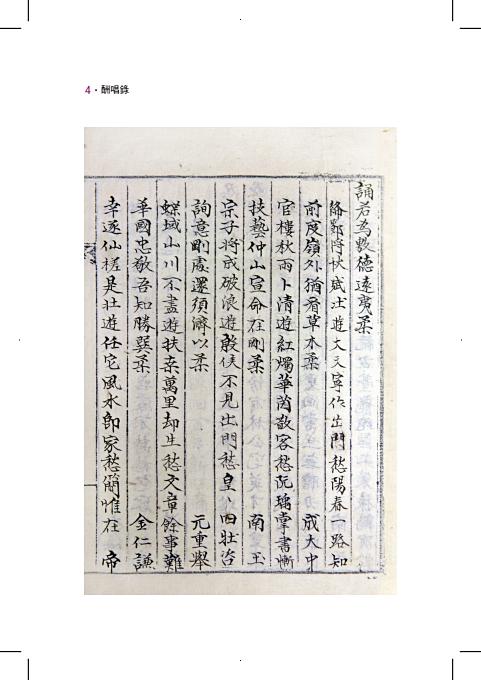 4 • 酬唱錄
誦若為數德遠夷柔
絳鄂將快賦壯遊大文寧作出門愁陽春一路知
前度嶺外猶看草木柔 成大中
官樓秋雨卜清遊紅燭華茵敵客愁阮瑀掌書慚
扶藝仲山宣命在剛柔 南玉
宗子將成破浪遊殷侯不見出門愁皇〻四壯咨
詢意剛處還須濟以柔 元重擧
蝶域山川不盡遊扶桒萬里却生愁文章餘事難
華國忠敬吾知勝巽柔 金仁謙
幸逐仙槎是壯遊任它風水郎家愁簡惟在 帝